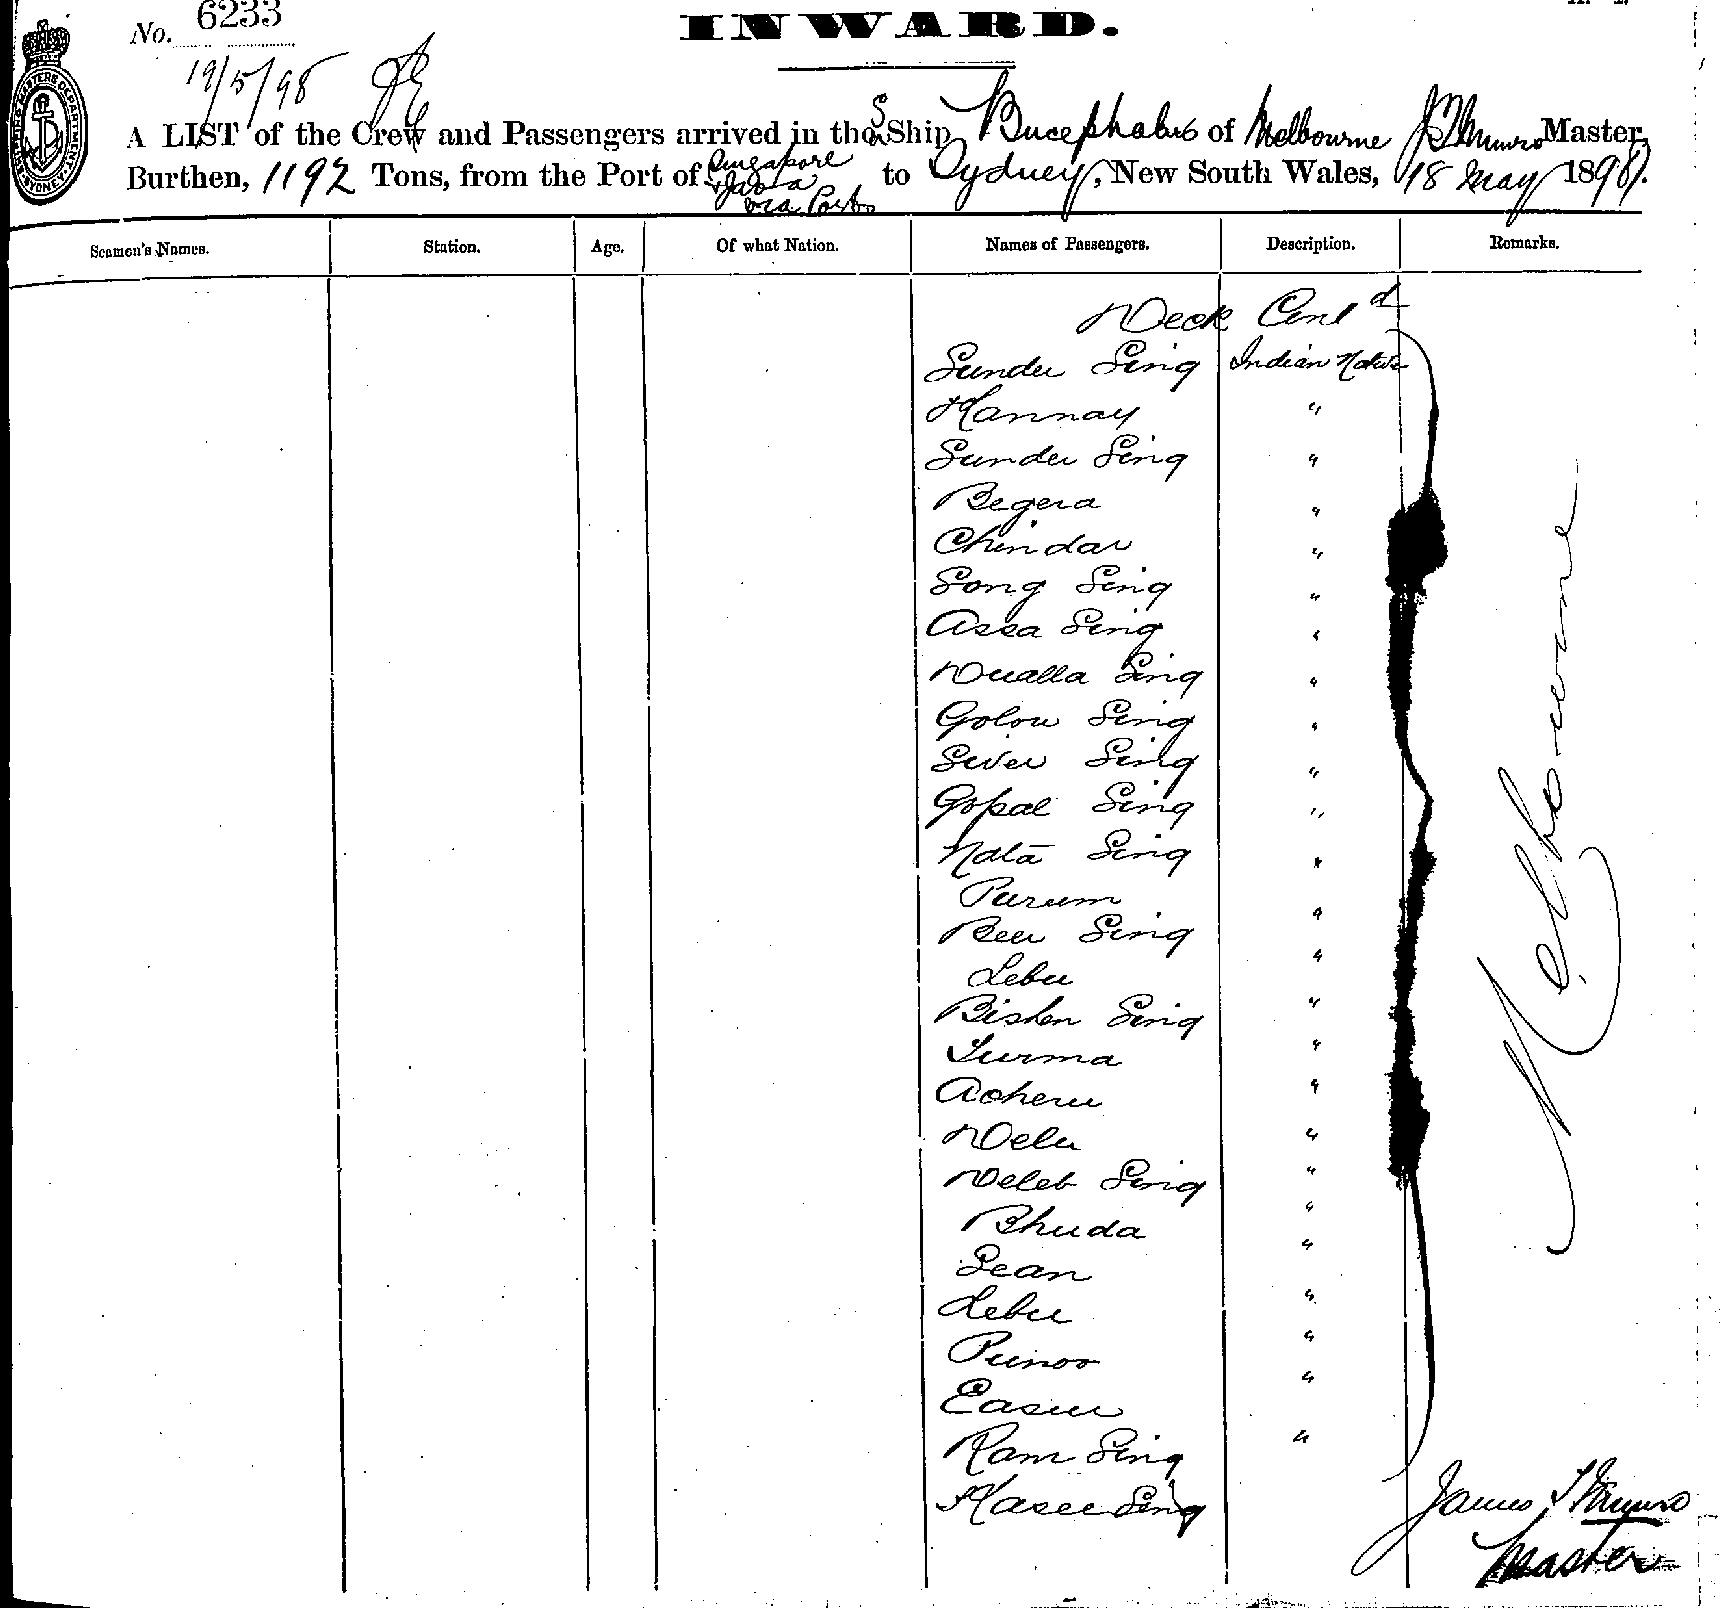 No. 6233
INWARD.
19/5/98
A LIST of the Crew and Passengers arrived in the S Ship Bucephalus of Melbourne J T Munro Master,
Burthen, 1192 Tons, from the Port of Singapore Java via Ports to Sydney, New South Wales, 18 May 1898.
Seamen's Names. Station. Age. Of what Nation. Names of Passengers. Description. Remarks.
Deck Cont d
Sunder Sing Indian Native
Hannay "
Sunder Sing "
Begera "
Chindar "
Song Sing "
Assa Sing "
Dualla Sing "
Golou Sing "
Siver Sing "
Gopal Sing "
Nata Sing "
Purum "
Beer Sing "
Lebu "
Bishen Sing "
Surma "
Acheru "
Delu "
Deleb Sing "
Bhuda "
Sean "
Lebu "
Punoo "
Easur "
Ram Sing "
Kaser Sing
Melbourne
James T Munro
Master